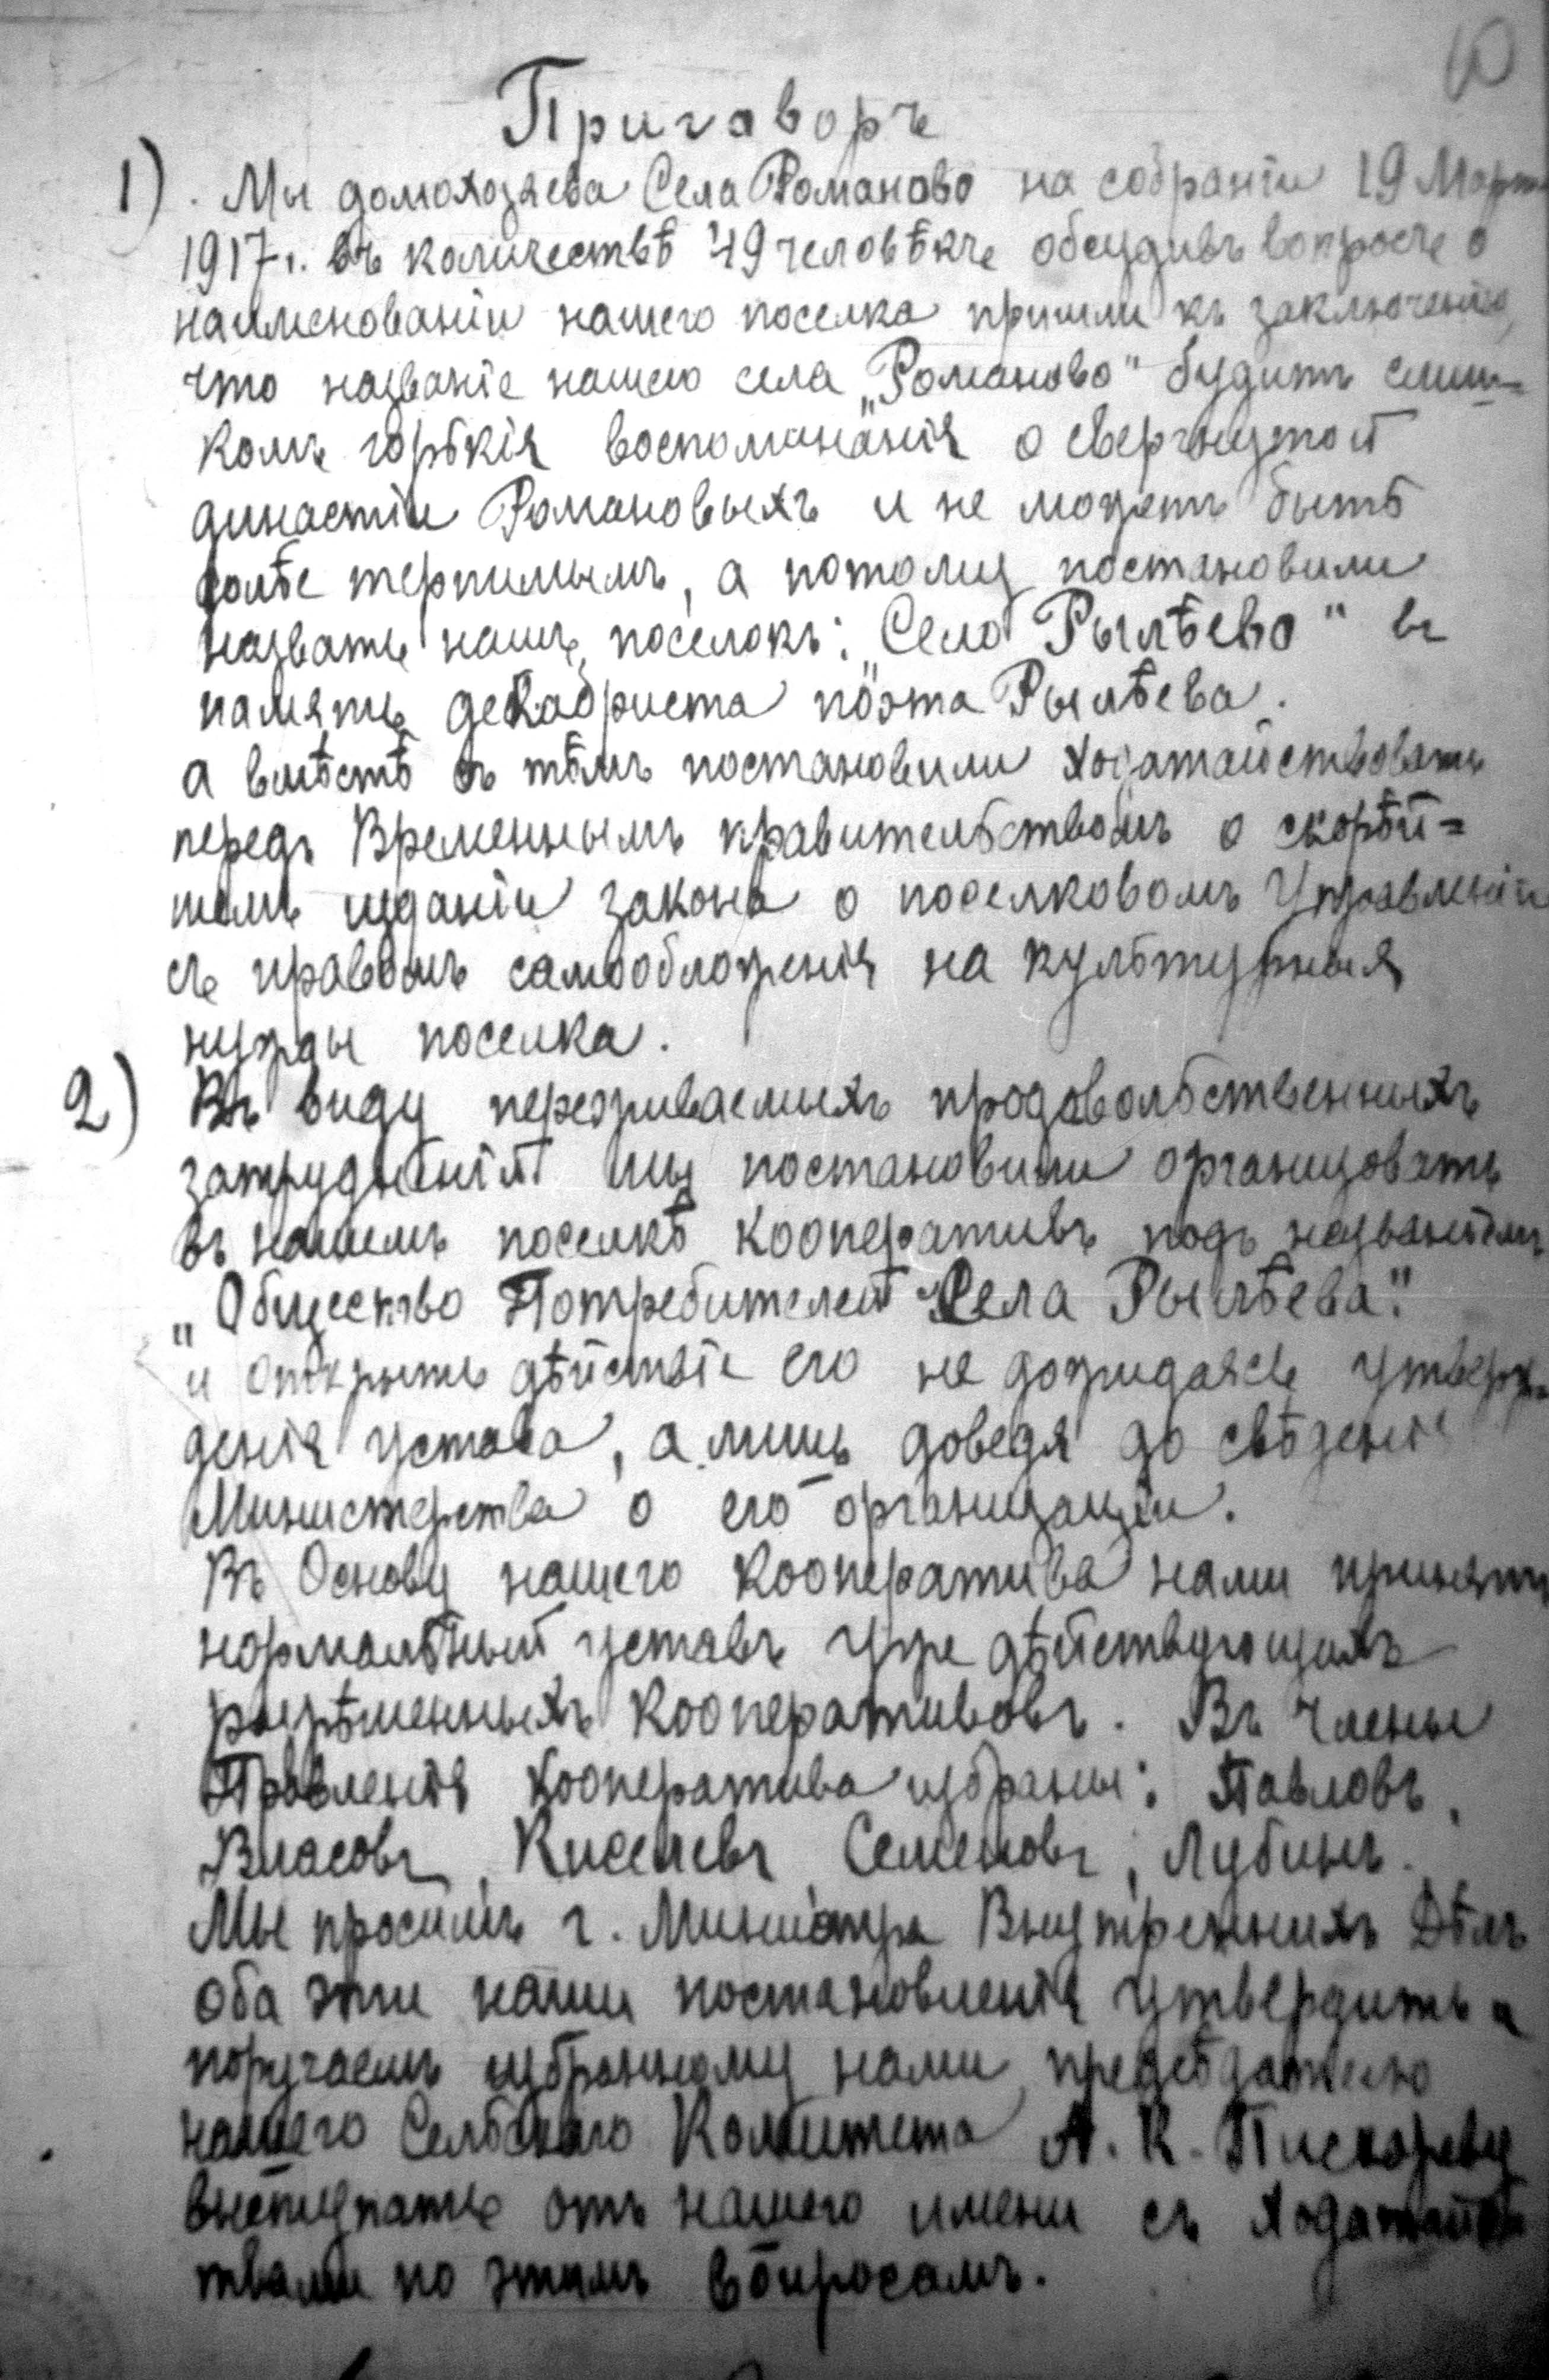 Приговоръ
1). Мы домохозяева Села Романово на собранiи 19 Марта
1917 г. въ количествѣ 49 человѣкъ обсудивъ вопросъ о
наименованiи нашего поселка пришли къ заключенiю,
что названiе нашего села „Романово" будитъ слиш=
комъ горькiя воспоминанiя о свергнутой
династiи Романовыхъ и не можетъ быть
долѣе терпимымъ, а потому постановили
назвать нашъ поселокъ: „Село Рылѣево" въ
память декабриста поэта Рылѣева.
а вмѣстѣ съ тѣмъ постановили ходатайствовать
передъ Временнымъ правительствомъ о скорѣй=
шемъ изданiи закона о поселковомъ Управленiи
съ правомъ самообложенiя на культурныя
нужды поселка.
2) Въ виду переживаемыхъ продовольственныхъ
затрудненiй мы постановили организовать
въ нашемъ поселкѣ кооперативъ подъ названiемъ
„Общество Потребителей Села Рылѣева".
и открыть дѣйствiе его не дожидаясь утверж=
денiя устава, а лишь доведя до свѣденiя
Министерства о его организацiи.
Въ Основу нашего Кооператива нами принятъ
нормальный уставъ уже дѣйствующихъ
разрѣшенныхъ Кооперативовъ. Въ Члены
Правленiя Кооператива избраны: Павловъ,
Власовъ, Киселевъ, Семеновъ, Лубинъ.
Мы просимъ г. Министра Внутреннихъ Дѣлъ
оба эти наши постановленiя утвердить и
поручаемъ избранному нами предсѣдателю
нашего Сельскаго Комитета А. К. Пискареву
выступать отъ нашего имени съ ходатайс
твами по этимъ вопросамъ.